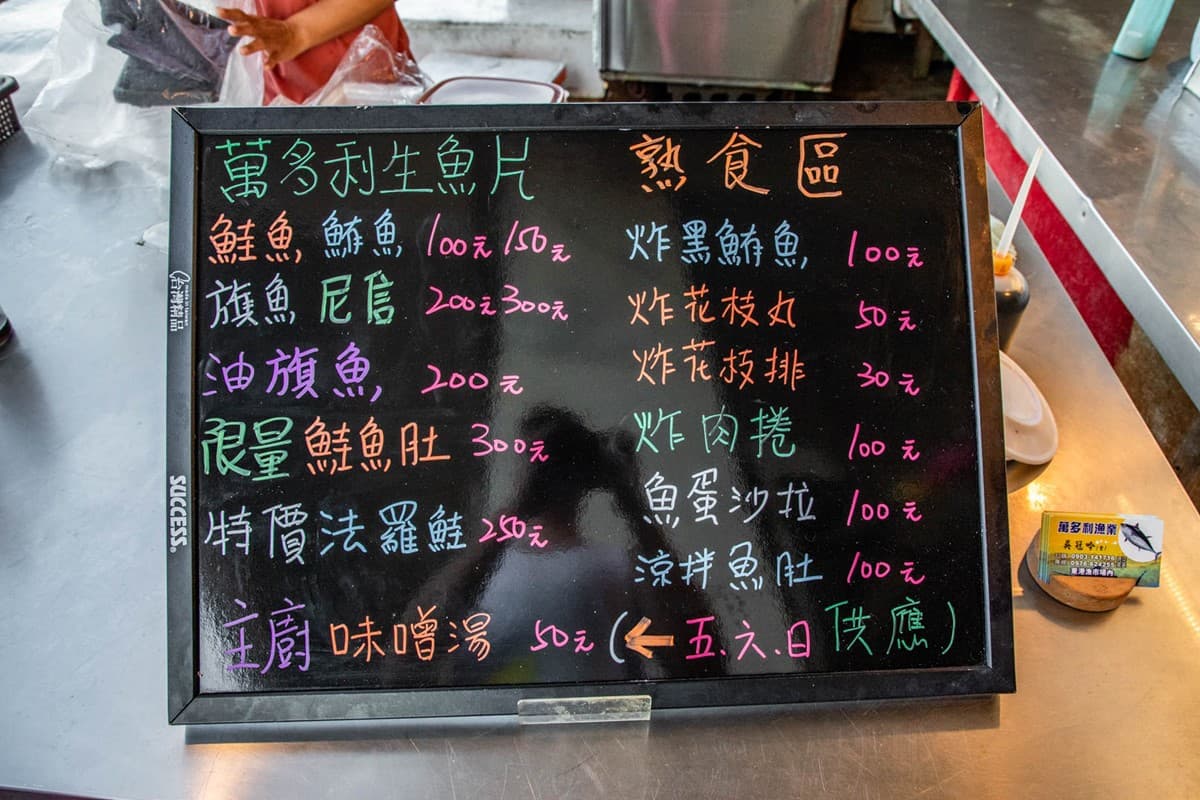 萬多利生魚片
鮭魚 鮪魚 100元 150元
旗魚 尼信 200元 300元
油旗魚 200元
限量 鮭魚肚 300元
特價 法羅鮭 250元
主廚 味噌湯 50元 (← 五.六.日 供應)
熟食區
炸黑鮪魚 100元
炸花枝丸 50元
炸花枝排 30元
炸肉捲 100元
魚蛋沙拉 100元
涼拌魚肚 100元
台灣精品
SUCCESS.
萬多利漁業
東港漁市場內